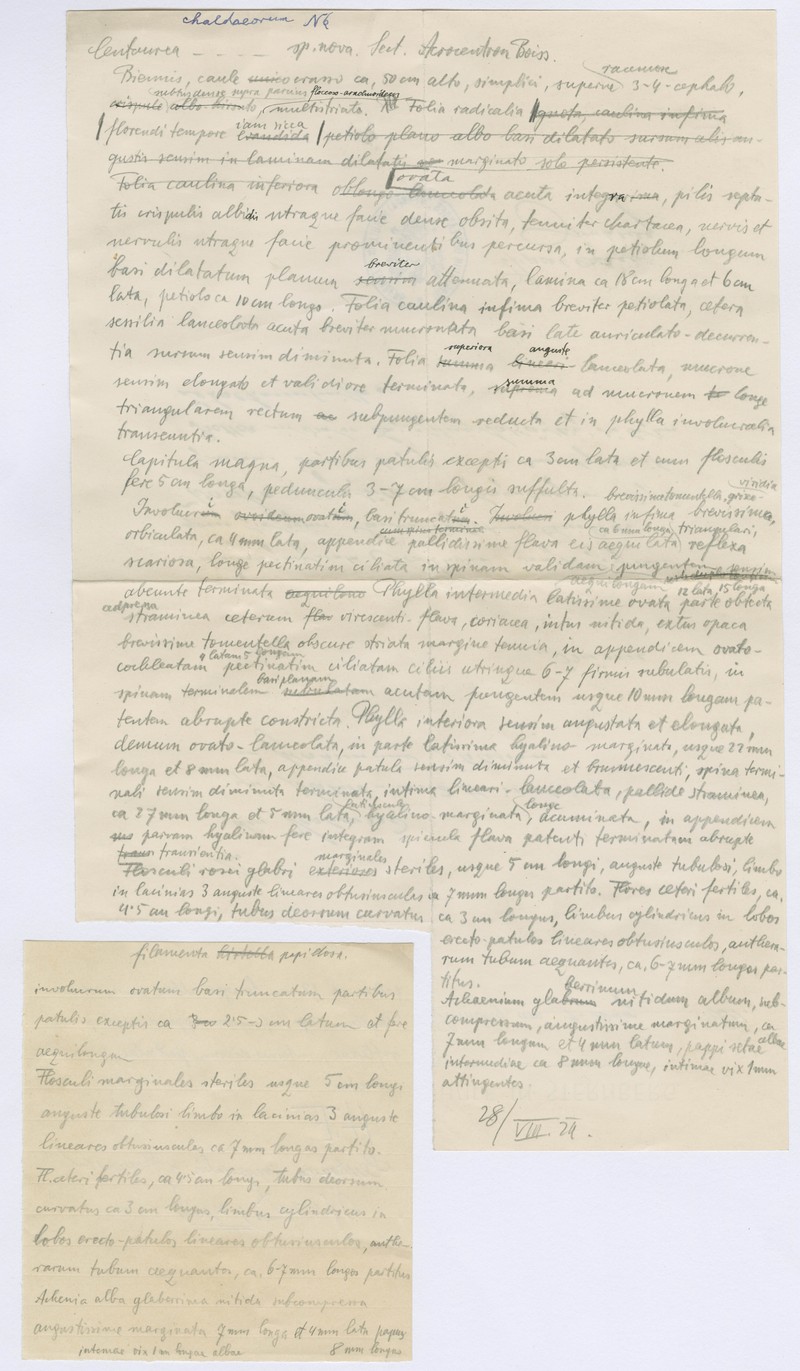 chaldaeorum Nb
Centaurea - - - - sp. nova. Sect. Acrocentron Boiss.
ramose
Biennis, caule crasso ca. 50 cm alto, simplici, superne 3-4-cephalo,
subtus dense supra parcius floccoso-arachnoideus
crispule albo hirsuto, multistriata. Folia radicalia caulina infima
iam sicca
florendi tempore petiolo plano albo basi dilatato sursum alis an-
gustis sensim in laminam dilatatis marginato solo persistente.
ovata
Folia caulina inferiora oblongo-lanceolata acuta integra, pilis septa-
tis crispulis albidis utraque facie dense obsita, tenuiter chartacea, nervis et
nervulis utraque facie prominentibus percursa, in petiolum longum
breviter
basi dilatatum planum sensim attenuata, lamina ca 18 cm longa et 6 cm
lata, petiolo ca 10 cm longo. Folia caulina infima breviter petiolata, cetera
sessilia lanceolata acuta breviter mucronata basi late auriculato-decurren-
superiora anguste
tia sursum sensim diminuta. Folia summa lineari-lanceolata, mucrone
summa
sensim elongato et validiore terminata, suprema ad mucronem longe
triangularem rectum subpungentem reducta et in phylla involucralia
transeuntia.
Capitula magna, partibus patulis exceptis ca 3 cm lata et cum flosculis
viridia
fere 5 cm longa, pedunculis 3-7 cm longis suffulta. brevissime tomentella, griseo-
Involucri ovati, basi truncati. phylla infima brevissima,
ca 6 mm longa triangulari,
orbiculata, ca 4 mm lata, appendice pallidissime flava eis aequilata reflexa
scariosa, longe pectinatim ciliata in spinam validam pungentem sensim
aequilongam 12 lata, 15 longa
abeunte terminata Phylla intermedia latissime ovata parte obtecta
straminea ceterum virescenti-flava, coriacea, intus nitida, extus opaca
brevissime tomentella obscure striata margine tenuia, in appendicem ovato-
9 latam 5 longam
cochleatam pectinatim ciliatam ciliis utrinque 6-7 firmis subulatis, in
basi planam
spinam terminalem subulatam acutam pungentem usque 10 mm longam pa-
tentem abrupte constricta. Phylla interiora sensim angustata et elongata,
demum ovato-lanceolata, in parte latissima hyalino-marginata, usque 22 mm
longa et 8 mm lata, appendice patula sensim diminuta et brunnescenti, spina termi-
nali sensim diminuta terminata, intima lineari-lanceolata, pallide straminea,
longe
ca 27 mm longa et 5 mm lata, hyalino-marginata, acuminata, in appendicem
parvam hyalinam fere integram spinula flava patenti terminatam abrupte
transientia.
marginales
Flosculi rosei glabri exteriores steriles, usque 5 cm longi, anguste tubulosi, limbo
in lacinias 3 anguste lineares obtusiusculas ca 7 mm longas partito. Flores ceteri fertiles, ca.
4·5 cm longi, tubus deorsum curvatus ca 3 cm longus, limbus cylindricus in lobos
erecto-patulos lineares obtusiusculos, anthera-
rum tubum aequantes, ca. 6-7 mm longos par-
titus.
berrimum
Achaenium glabrum nitidum album, sub-
compressum, angustissime marginatum, ca
7 mm longum et 4 mm latum, pappi setae albae
intermediae ca 8 mm longae, intimae vix 1 mm
attingentes.
28/VIII. 29.
filamenta papillosa.
involucrum ovatum basi truncatum partibus
patulis exceptis ca 2·5-3 cm latum et fere
aequilongum
Flosculi marginales steriles usque 5 cm longi
anguste tubulosi limbo in lacinias 3 anguste
lineares obtusiusculas ca 7 mm longas partito.
Fl. ceteri fertiles, ca 4·5 cm longi, tubus deorsum
curvatus ca 3 cm longus, limbus cylindricus in
lobos erecto-patulos lineares obtusiusculos, anthe-
rarum tubum aequantes, ca. 6-7 mm longos partitus
Achenia alba glaberrima nitida subcompressa
angustissime marginata 7 mm longa et 4 mm lata pappus
intimae vix 1 m longae albae 8 mm longus